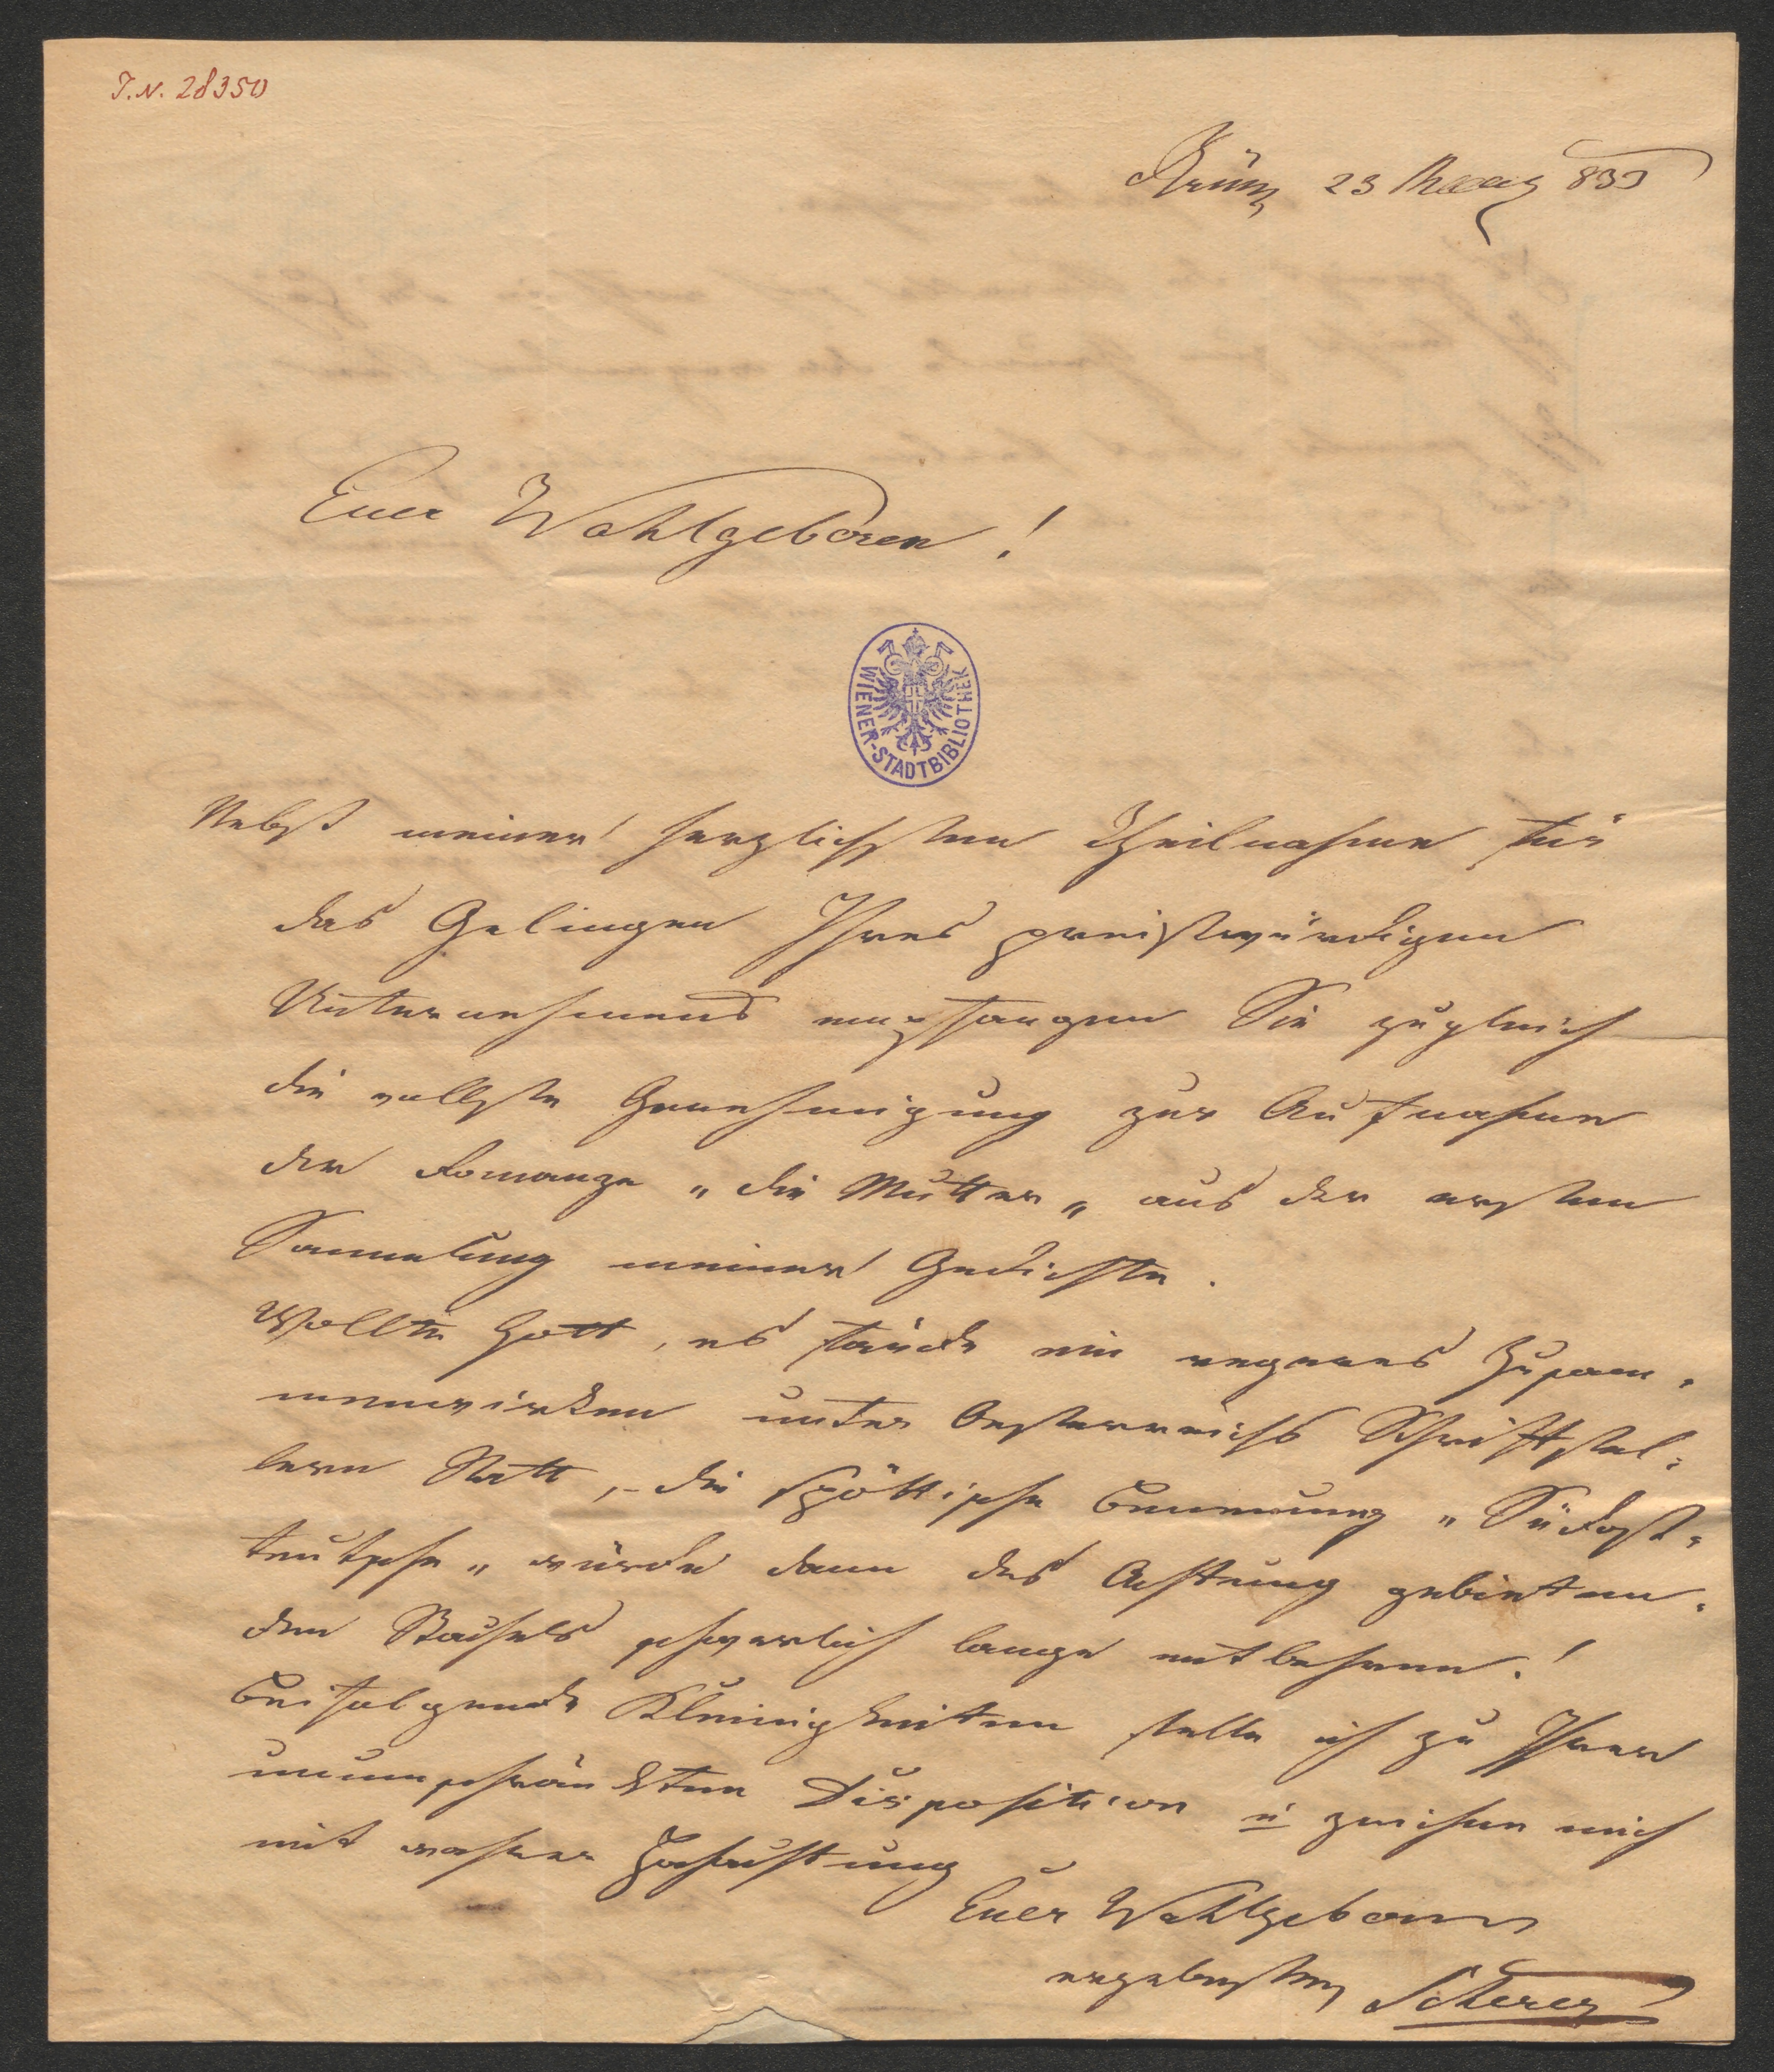 I.N. 28350
Brünn 23 März 833
Euer Wohlgeboren!
WIENER-STADTBIBLIOTHEK
Nebst meiner herzlichsten Theilnahme für
das Gelingen Ihres preiswürdigen
Unternehmens empfangen Sie zugleich
die vollste Genehmigung zur Aufnahme
der Romanze „die Mutter„ aus der ersten
Sammlung meiner Gedichte.
Wollte Gott, es fände ein regeres Zusam-
menwirken unter Oesterreichs Schriftstel-
lern Statt, – die spöttische Benennung „Südost-
teutsche„ würde dann des Achtung gebieten-
den Stachels schwerlich lange entbehren!
Beifolgende Kleinigkeiten stelle ich zu Ihrer
unumschränkten Disposition u zeichne mich
mit wahrer Hochachtung
Euer Wohlgeboren
ergebenster Scherer